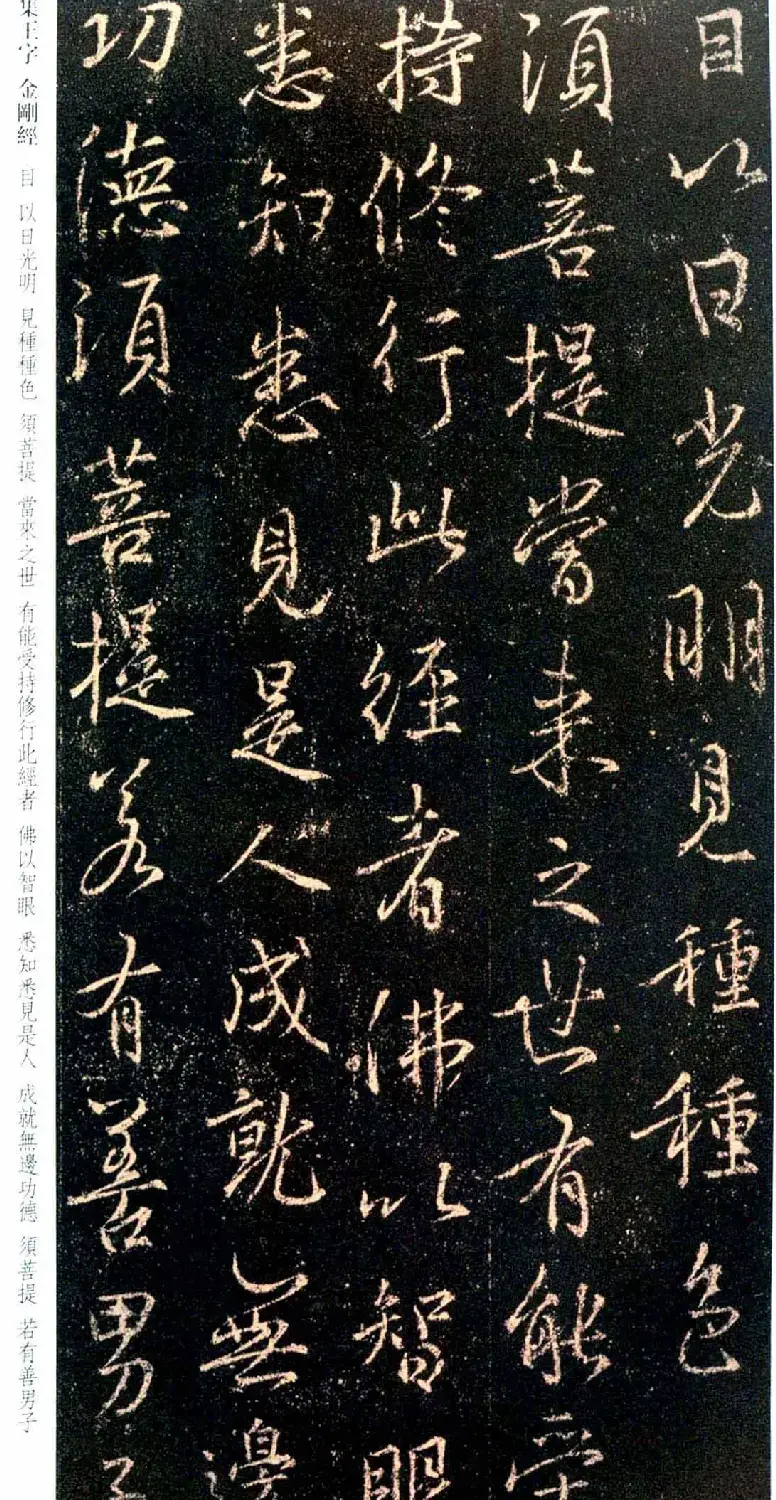 目以日光明見種種色
須菩提當来之世有能受
持修行此經者佛以智眼
悉知悉見是人成就無邊
功德須菩提若有善男子
集王字 金剛經 目 以日光明 見種種色 須菩提 當來之世 有能受持修行此經者 佛以智眼 悉知悉見是人 成就無邊功德 須菩提 若有善男子